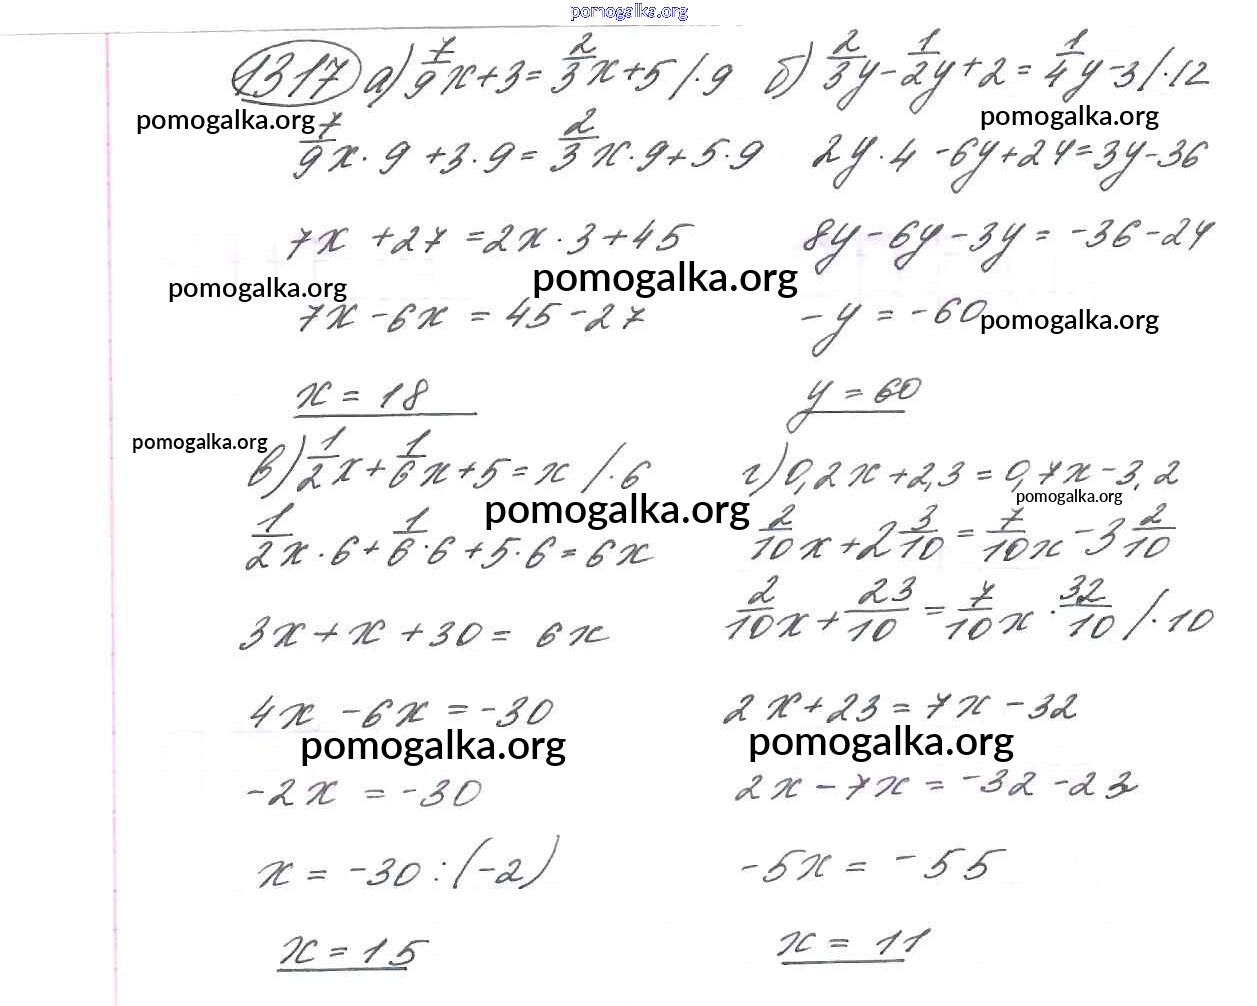 pomogalka.org
1317 а) 7/9 x + 3 = 2/3 x + 5 / · 9
pomogalka.org
7/9 x · 9 + 3 · 9 = 2/3 x · 9 + 5 · 9
7x + 27 = 2x · 3 + 45
pomogalka.org
pomogalka.org
7x - 6x = 45 - 27
x = 18
б) 2/3 y - 1/2 y + 2 = 1/4 y - 3 / · 12
pomogalka.org
2y · 4 - 6y + 24 = 3y - 36
8y - 6y - 3y = -36 - 24
- y = -60
pomogalka.org
y = 60
pomogalka.org
в) 1/2 x + 1/6 x + 5 = x / · 6
pomogalka.org
1/2 x · 6 + 1/6 · 6 + 5 · 6 = 6x
3x + x + 30 = 6x
4x - 6x = -30
pomogalka.org
-2x = -30
x = -30 : (-2)
x = 15
г) 0,2x + 2,3 = 0,7x - 3,2
pomogalka.org
2/10 x + 2 3/10 = 7/10 x - 3 2/10
2/10 x + 23/10 = 7/10 x · 32/10 / · 10
2x + 23 = 7x - 32
pomogalka.org
2x - 7x = -32 - 23
-5x = -55
x = 11